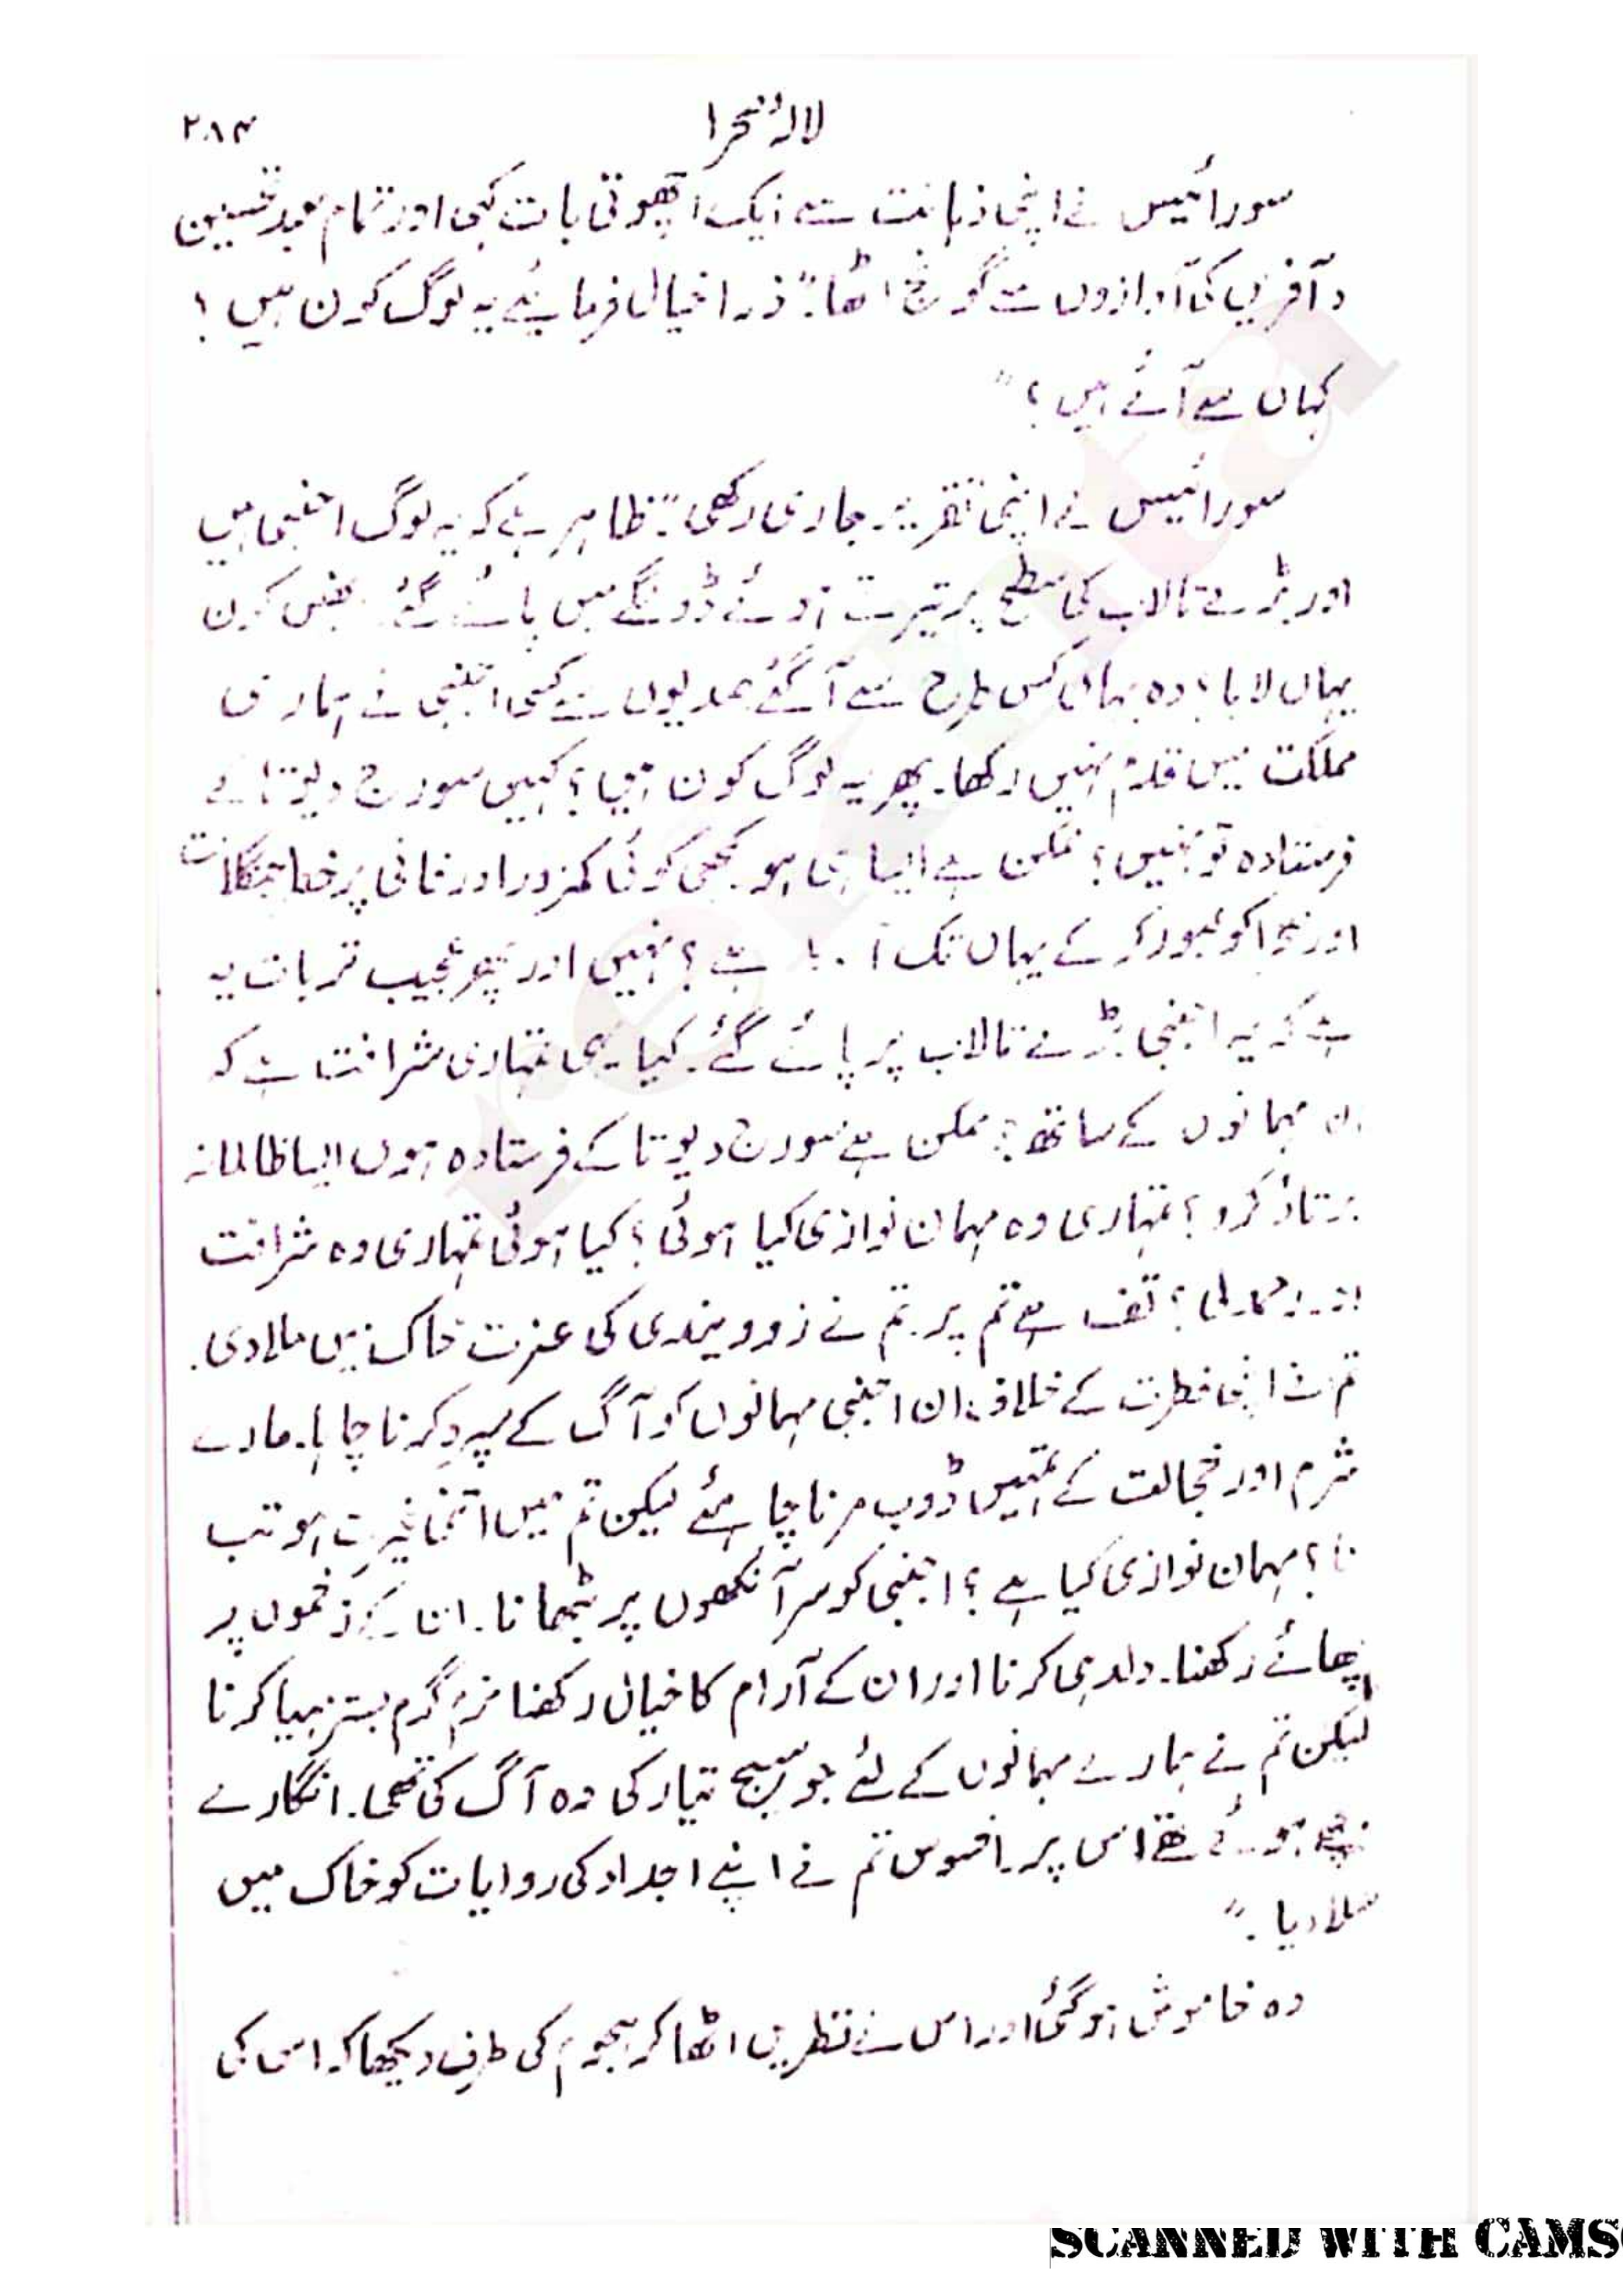 لالۂ صحرا ۲۸۴
سورائیس نے اپنی ذہانت سے ایک اچھوتی بات کہی اور تمام معبد تحسین
و آفریں کی آوازوں سے گونج اٹھا۔ "ذرا خیال فرمائیے یہ لوگ کون ہیں؟
کہاں سے آئے ہیں؟"
سورائیس نے اپنی تقریر جاری رکھی۔ "ظاہر ہے کہ یہ لوگ اجنبی ہیں
اور بڑے تالاب کی سطح پر تیرتے ہوئے ڈونگے میں پائے گئے۔ کون
یہاں لایا؟ وہ یہاں کس طرح سے آگئے صدیوں سے کسی اجنبی نے ہماری
مملکت میں قدم نہیں رکھا۔ پھر یہ لوگ کون ہیں؟ کہیں سورج دیوتا کے
فرستادہ تو نہیں؟ ممکن ہے ایسا ہی ہو۔ کبھی کوئی کمزور اور فانی پرخطر جنگلات
اور صحرا کو عبور کر کے یہاں تک آ سکا ہے؟ نہیں اور پھر عجیب تر بات یہ
ہے کہ یہ اجنبی بڑے تالاب پر پائے گئے۔ کیا یہی تمہاری شرافت ہے کہ
ان مہمانوں کے ساتھ؟ ممکن ہے سورج دیوتا کے فرستادہ ہوں ایسا ظالمانہ
برتاؤ کرو؟ تمہاری وہ مہمان نوازی کیا ہوئی؟ کیا ہوئی تمہاری وہ شرافت
اور رحمدلی؟ تف ہے تم پر۔ تم نے زوویندی کی عزت خاک میں ملا دی۔
تم نے اپنی فطرت کے خلاف ان اجنبی مہمانوں کو آگ کے سپرد کرنا چاہا۔ مارے
شرم اور خجالت کے تمہیں ڈوب مرنا چاہئے لیکن تم میں اتنی غیرت ہو تب
نا؟ مہمان نوازی کیا ہے؟ اجنبی کو سر آنکھوں پر بٹھانا۔ ان کے زخموں پر
پھائے رکھنا۔ دلدہی کرنا اور ان کے آرام کا خیال رکھنا نرم گرم بستر مہیا کرنا
لیکن تم نے ہمارے مہمانوں کے لئے جو سیج تیار کی وہ آگ کی تھی۔ انگارے
بچھے ہوئے تھے اس پر۔ افسوس تم نے اپنے اجداد کی روایات کو خاک میں
ملا دیا۔"
وہ خاموش ہو گئی اور اس نے نظریں اٹھا کر ہجوم کی طرف دیکھا کہ اس کی
SCANNED WITH CAMS